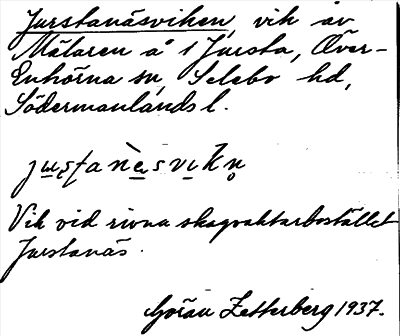 Jurstanäsviken, vik av
Mälaren å 1 Jursta, Över-
Enhörna sn, Selebo hd,
Södermanlands l.
Vik vid rivna skogvaktarbostället
Jurstanäs.
Göran Zetterberg 1937.